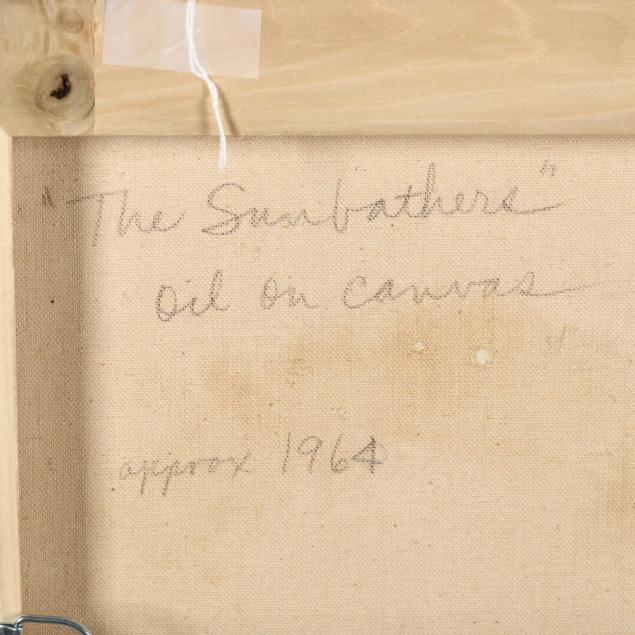 "The Sunbathers"
oil on canvas
approx 1964